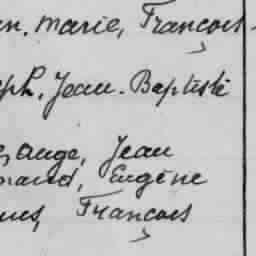 Marie, François
Jean. Baptiste
Ange, Jean
Eugène
François